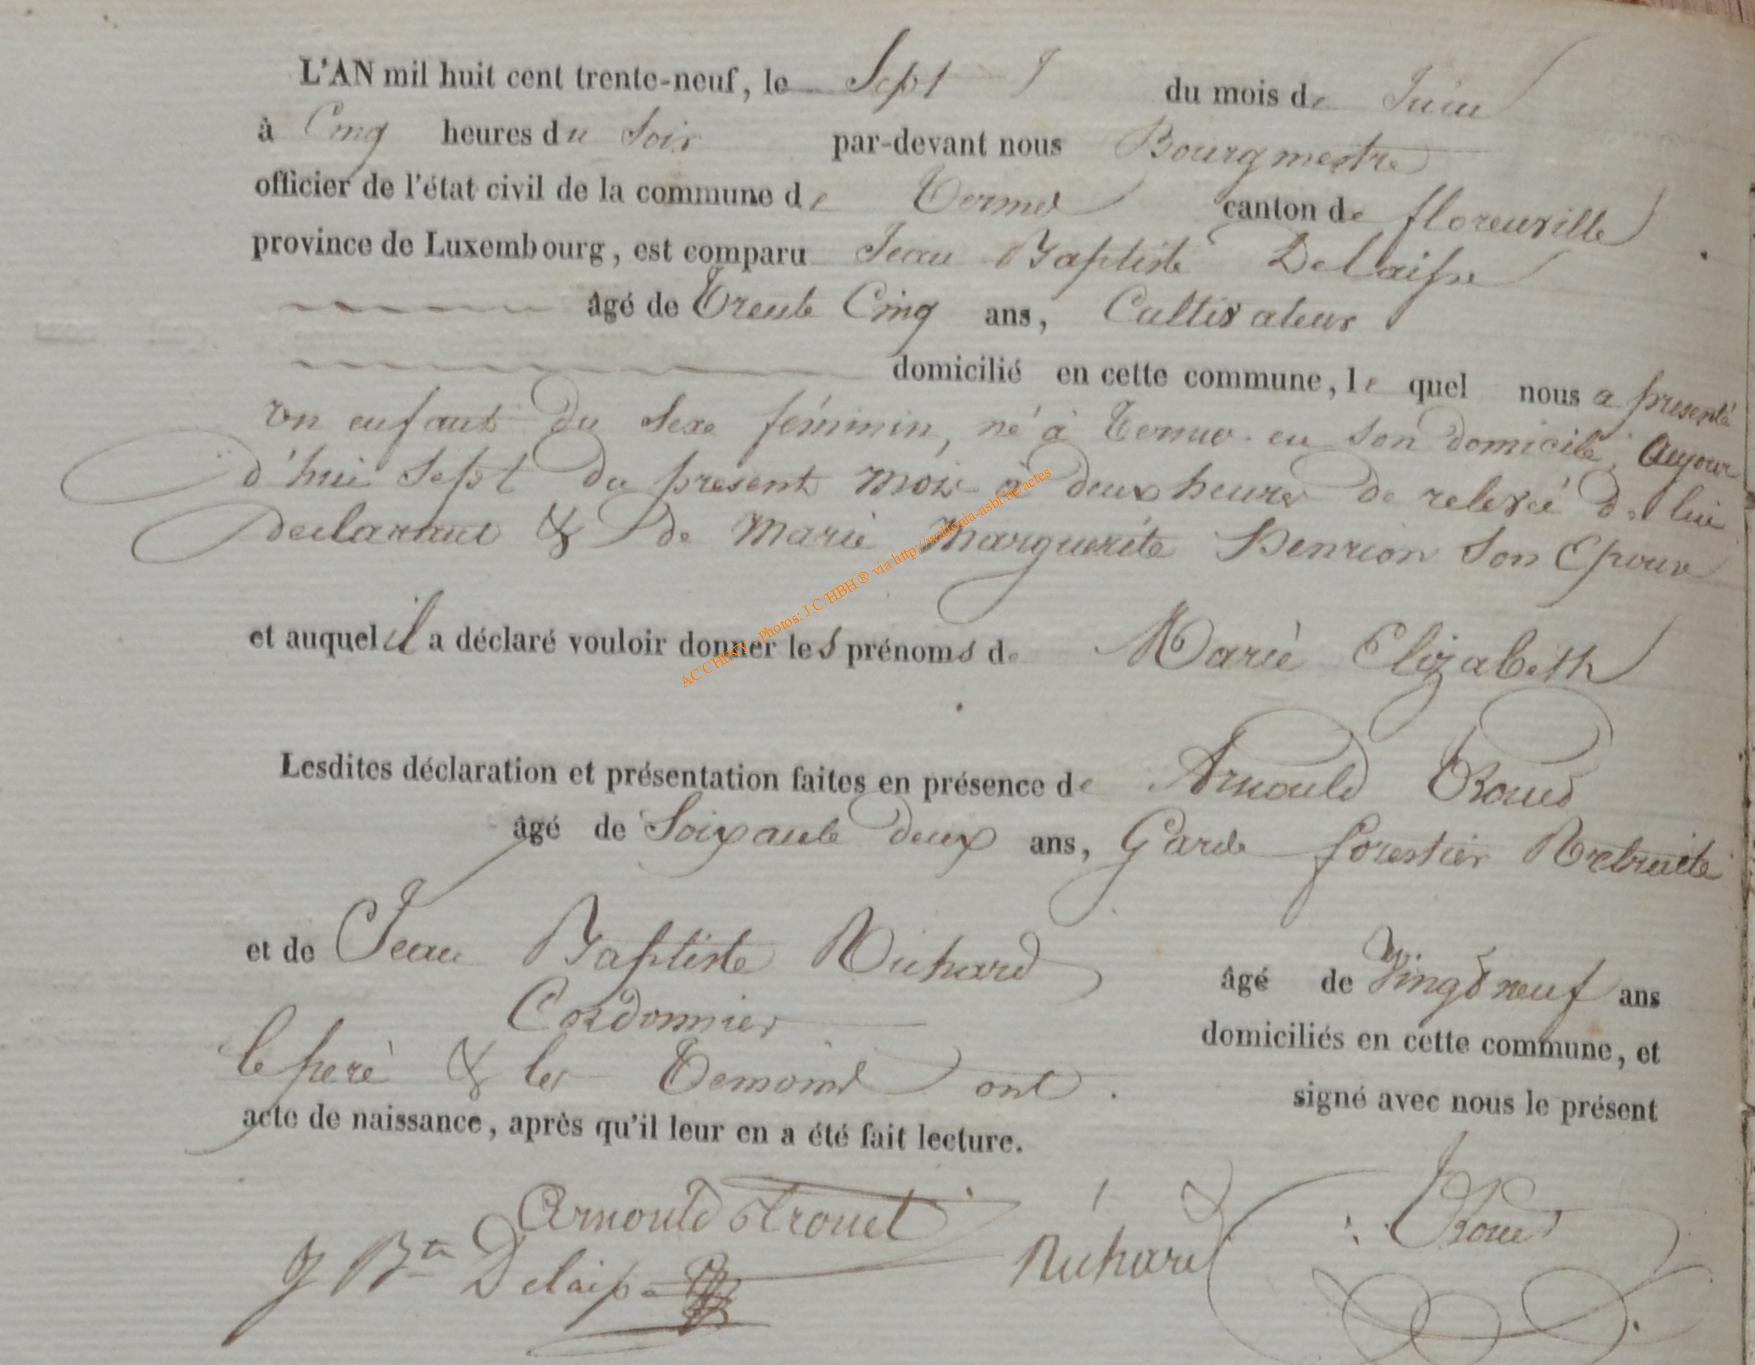 L'AN mil huit cent trente-neuf, le Sept du mois de Juin
à Cinq heures du Soir par-devant nous Bourgmestre
officier de l'état civil de la commune de Termes canton de florenville
province de Luxembourg, est comparu Jean Baptiste Delaisse
âgé de Trente Cinq ans, Cultivateur
domicilié en cette commune, le quel nous a presenté
un enfant du sexe féminin, né à Termes en son domicile, aujour
d'hui Sept du present mois à deux heures de relevé de lui
declarant & de Marie Marguerite Henrion Son Epouse
et auquel il a déclaré vouloir donner les prénoms de Marie Elizabeth
Lesdites déclaration et présentation faites en présence de Arnould
âgé de Soixante deux ans, Garde forestier Retraité
et de Jean Baptiste Richard âgé de Vingt neuf ans
Cordonnier domiciliés en cette commune, et
le peré & les Temoins ont signé avec nous le présent
acte de naissance, après qu'il leur en a été fait lecture.
Arnould
J Bte Delaisse Richard
AC CHINY - Photos: J.C/HBH ® via http://wallonia-asbl.be/actes